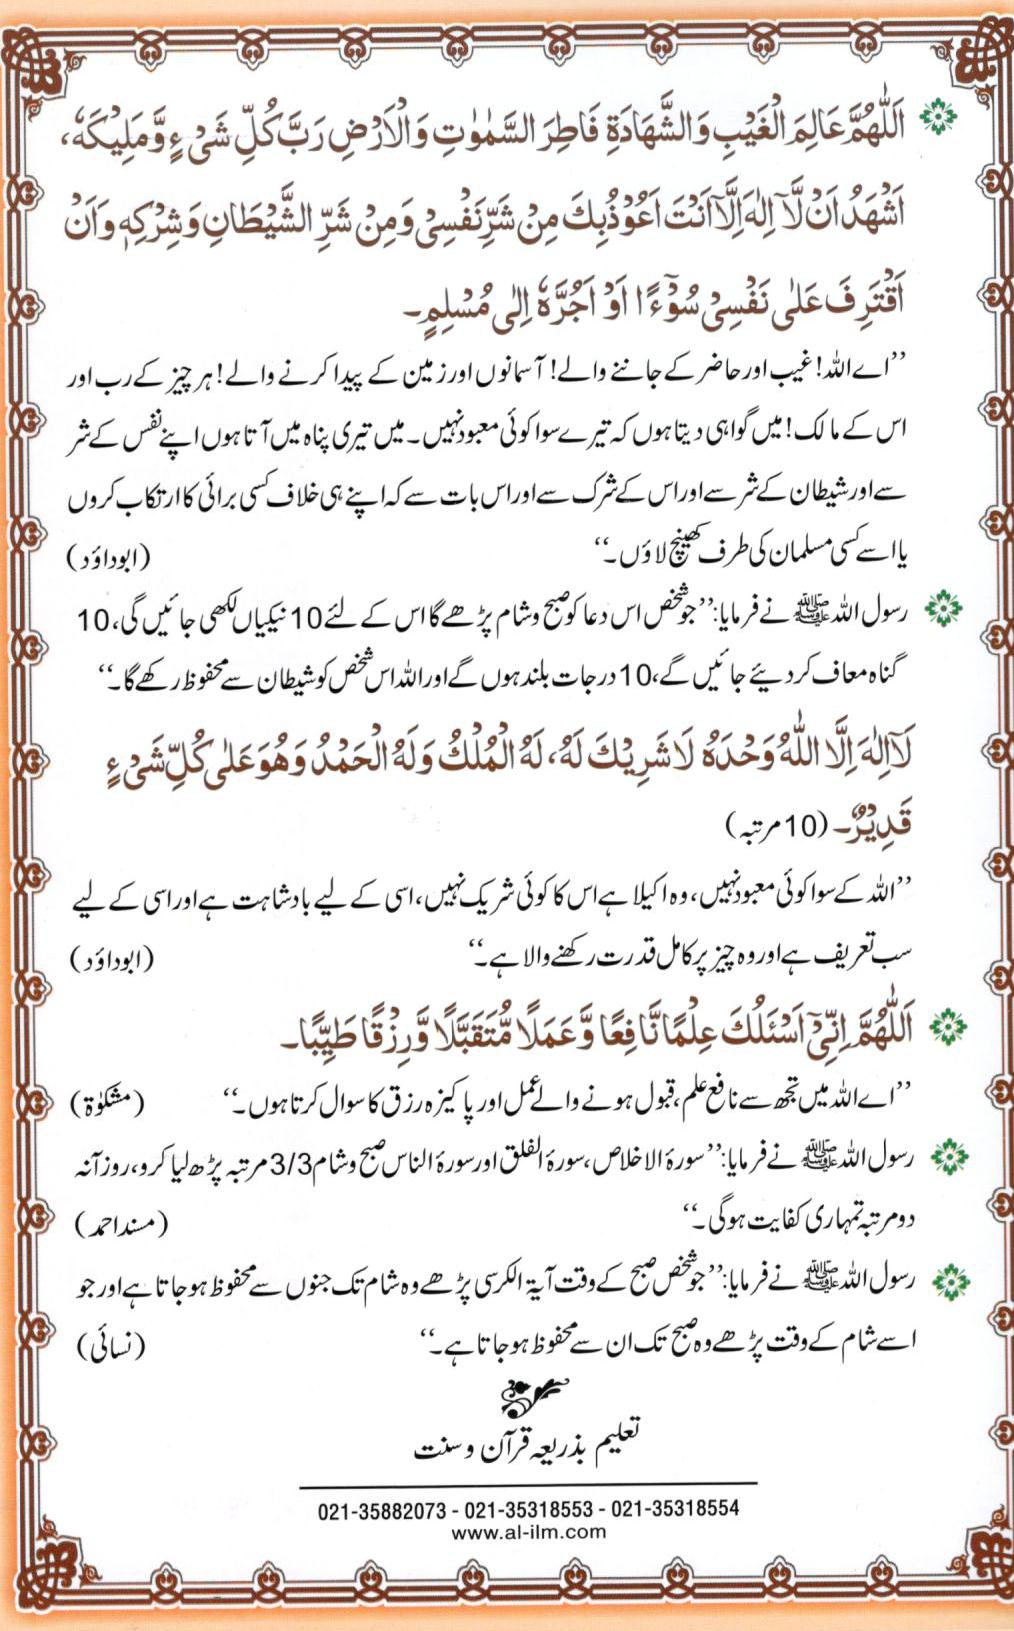 اَللّٰهُمَّ عَالِمَ الْغَيْبِ وَالشَّهَادَةِ فَاطِرَ السَّمٰوٰتِ وَالْاَرْضِ رَبَّ كُلِّ شَیْءٍ وَّمَلِيْكَهٗ،
اَشْهَدُ اَنْ لَّاۤ اِلٰهَ اِلَّاۤ اَنْتَ اَعُوْذُبِكَ مِنْ شَرِّ نَفْسِیْ وَمِنْ شَرِّ الشَّيْطَانِ وَشِرْكِهٖ وَاَنْ
اَقْتَرِفَ عَلٰی نَفْسِیْ سُوْٓءًا اَوْ اَجُرَّهٗ اِلٰی مُسْلِمٍ۔
’’اے اللہ! غیب اور حاضر کے جاننے والے! آسمانوں اور زمین کے پیدا کرنے والے! ہر چیز کے رب اور
اس کے مالک! میں گواہی دیتا ہوں کہ تیرے سوا کوئی معبود نہیں۔ میں تیری پناہ میں آتا ہوں اپنے نفس کے شر
سے اور شیطان کے شر سے اور اس کے شرک سے اور اس بات سے کہ اپنے ہی خلاف کسی برائی کا ارتکاب کروں
یا اسے کسی مسلمان کی طرف کھینچ لاؤں۔‘‘ (ابوداؤد)
رسول اللہ ﷺ نے فرمایا: ’’جو شخص اس دعا کو صبح و شام پڑھے گا اس کے لئے 10 نیکیاں لکھی جائیں گی، 10
گناہ معاف کر دیئے جائیں گے، 10 درجات بلند ہوں گے اور اللہ اس شخص کو شیطان سے محفوظ رکھے گا۔‘‘
لَاۤ اِلٰهَ اِلَّا اللّٰهُ وَحْدَهُ لَا شَرِيْكَ لَهُ، لَهُ الْمُلْكُ وَلَهُ الْحَمْدُ وَهُوَ عَلٰی كُلِّ شَیْءٍ
قَدِيْرٌ۔ (10 مرتبہ)
’’اللہ کے سوا کوئی معبود نہیں، وہ اکیلا ہے اس کا کوئی شریک نہیں، اسی کے لیے بادشاہت ہے اور اسی کے لیے
سب تعریف ہے اور وہ چیز پر کامل قدرت رکھنے والا ہے۔‘‘ (ابوداؤد)
اَللّٰهُمَّ اِنِّیْۤ اَسْئَلُكَ عِلْمًا نَّافِعًا وَّعَمَلًا مُّتَقَبَّلًا وَّرِزْقًا طَيِّبًا۔
’’اے اللہ میں تجھ سے نافع علم، قبول ہونے والے عمل اور پاکیزہ رزق کا سوال کرتا ہوں۔‘‘ (مشکوٰۃ)
رسول اللہ ﷺ نے فرمایا: ’’سورۃ الاخلاص، سورۃ الفلق اور سورۃ الناس صبح و شام 3/3 مرتبہ پڑھ لیا کرو، روز آنہ
دو مرتبہ تمہاری کفایت ہوگی۔‘‘ (مسند احمد)
رسول اللہ ﷺ نے فرمایا: ’’جو شخص صبح کے وقت آیۃ الکرسی پڑھے وہ شام تک جنوں سے محفوظ ہو جاتا ہے اور جو
اسے شام کے وقت پڑھے وہ صبح تک ان سے محفوظ ہو جاتا ہے۔‘‘ (نسائی)
تعلیم بذریعہ قرآن و سنت
021-35882073 - 021-35318553 - 021-35318554
www.al-ilm.com